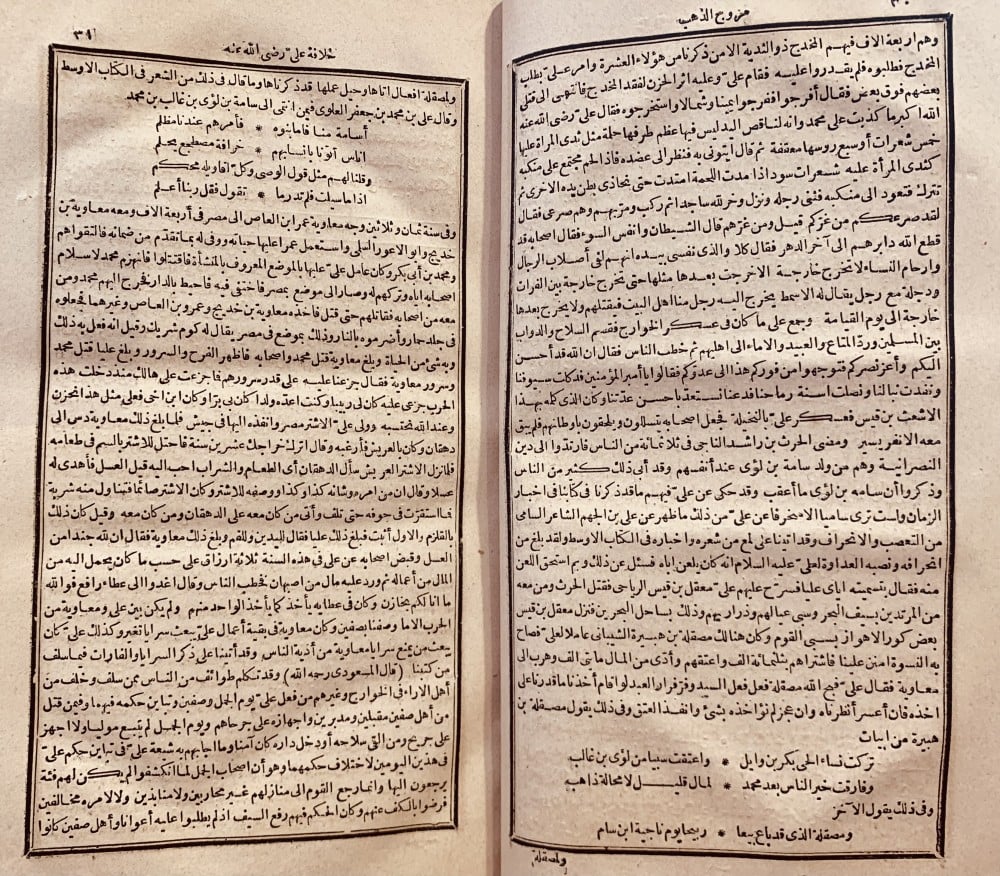 مروج الذهب
وهم اربعة آلاف فيهم المخدج ذو الثدية الا من ذكرنا من هؤلاء العشرة وأمر على بطلب
المخدج فطلبوه فلم يقدروا عليه فقام على وعليه اثر الحزن لفقد المخدج فانتهى الى قتلى
بعضهم فوق بعض فقال أفرجوا ففرجوا يمينا وشمالا واستخرجوه فقال على رضى الله عنه
الله اكبر ما كذبت على محمد وانه لناقص اليد ليس فيها عظم طرفها حلمة مثل ثدى المرأة عليها
خمس شعرات أو سبع رؤسها معقفة ثم قال ايتونى به فنظر الى عضده فاذا لحم مجتمع على منكبه
كثدى المرأة عليه شعرات سود اذا مدت اللحمة امتدت حتى تحاذى بطن يده الاخرى ثم
تترك فتعود الى منكبه فثنى رجله ونزل وخر لله ساجدا ثم ركب ومر بهم وهم صرعى فقال
لقد صرعكم من غركم قيل ومن غرهم قال الشيطان وانفس السوء فقال اصحابه قد
قطع الله دابرهم الى آخر الدهر فقال كلا والذى نفسى بيده انهم لفى أصلاب الرجال
وارحام النساء لا تخرج خارجة الا خرجت بعدها مثلها حتى تخرج خارجة بين الفرات
ودجلة مع رجل يقال له الاسمط يخرج اليه رجل منا اهل البيت فيقتلهم ولا يخرج بعدها
خارجة الى يوم القيامة وجمع على ما كان فى عسكر الخوارج فقسم السلاح والدواب
بين المسلمين ورد المتاع والعبيد والاماء الى اهليهم ثم خطب الناس فقال ان الله قد أحسن
اليكم وأعز نصركم فتوجهوا من فوركم هذا الى عدوكم فقالوا يا أمير المؤمنين قد كلت سيوفنا
ونفدت نبالنا ونصلت اسنة رماحنا فدعنا نستعد باحسن عدتنا وكان الذى كلمه بهذا
الاشعث بن قيس فعسكر على بالنخيلة فجعل اصحابه يتسللون ويلحقون باوطانهم فلم يبق
معه الا نفر يسير ومضى الحرث بن راشد الناجى فى ثلاثمائة من الناس فارتدوا الى دين
النصرانية وهم من ولد سامة بن لؤى عند أنفسهم وقد أبى ذلك كثير من الناس
وذكروا أن سامه بن لؤى ما أعقب وقد حكى عن على فيهم ما قد ذكرنا فى كتابنا فى اخبار
الزمان ولست ترى ساميا الا منحرفا عن على من ذلك ما ظهر عن على بن الجهم الشاعر السامى
من التعصب والانحراف وقد اتينا على لمع من شعره واخباره فى الكتاب الاوسط ولقد بلغ من
انحرافه ونصبه العداوة لعلى عليه السلام انه كان يلعن اباه فسئل عن ذلك وبم استحق اللعن
منه فقال بتسميته اياى عليا فسرح عليهم على معقل بن قيس الرياحى فقتل الحرث ومن معه
من المرتدين بسيف البحر وسبى عيالهم وذراريهم وذلك بساحل البحرين فنزل معقل بن قيس
بعض كور الاهواز بسبى القوم وكان هنالك مصقلة بن هبيرة الشيبانى عاملا لعلى فصاح
به النسوة امنن علينا فاشتراهم بثلثمائة الف واعتقهم وأدى من المال مائتى الف وهرب الى
معاوية فقال على قبح الله مصقلة فعل فعل السيد وفر فرار العبد لو اقام أخذنا ما قدرنا على
اخذه فان أعسر أنظرناه وان عجز لم نؤاخذه بشئ وانفذ العتق وفى ذلك يقول مصقلة بن
هبيرة من ابيات
تركت نساء الحى بكر بن وايل * واعتقت سبيا من لؤى بن غالب
وفارقت خير الناس بعد محمد * لمال قليل لا محالة ذاهب
وفى ذلك يقول الآخر
ومصقلة الذى قد باع بيعا * ربيحا يوم ناجية ابن سام
ولمصقلة
خلافة على رضى الله عنه
٣٩
ولمصقلة افعال اتاها وحيل عملها قد ذكرناها وما قال فى ذلك من الشعر فى الكتاب الاوسط
وقال على بن محمد بن جعفر العلوى فيمن انتمى الى سامة بن لؤى بن غالب بن محمد
أسامة منا فاما بنوه * فأمرهم عندنا مظلم
اناس أتونا بانسابهم * خرافة مضطجع يحلم
وقلنا لهم مثل قول الوصى وكل اقاويله محكم
اذا ما سئلت فلم تدر ما * تقول فقل ربنا أعلم
وفى سنة ثمان وثلاثين وجه معاوية عمرا بن العاص الى مصر فى أربعة آلاف ومعه معاوية بن
خديج وابو الاعور السلمى واستعمل عمرا عليها حياته ووفى له بما تقدم من ضمانه فالتقوا هم
ومحمد بن أبى بكر وكان عامل على عليها بالموضع المعروف بالمنشأة فاقتتلوا فانهزم محمد لاسلام
اصحابه اياه وتركهم له وصار الى موضع بمصر فاختفى فيه فأحيط بالدار فخرج اليهم محمد ومن
معه من اصحابه فقاتلهم حتى قتل فأخذه معاوية بن خديج وعمرو بن العاص وغيرهما فجعلوه
فى جلد حمار وأضرموه بالنار وذلك بموضع فى مصر يقال له كوم شريك وقيل انه فعل به ذلك
وبه شئ من الحياة وبلغ معاوية قتل محمد واصحابه فاظهر الفرح والسرور وبلغ عليا قتل محمد
وسرور معاوية فقال جزعنا عليه على قدر سرورهم فما جزعت على هالك منذ دخلت هذه
الحرب جزعى عليه كان لى ربيبا وكنت اعده ولدا كان بى برا وكان ابن اخى فعلى مثل هذا نحزن
وعند الله نحتسبه وولى على الاشتر مصر وانفذه اليها فى جيش فلما بلغ ذلك معاوية دس الى
دهقان وكان بالعريش فأرغبه وقال اترك خراجك عشرين سنة فاحتل للاشتر بالسم فى طعامه
فلما نزل الاشتر العريش سأل الدهقان أى الطعام والشراب احب اليه قيل العسل فأهدى له
عسلا وقال ان من امره وشانه كذا وكذا ووصفه للاشتر وكان الاشتر صائما فتناول منه شربة
فما استقرت فى جوفه حتى تلف وأتى من كان معه على الدهقان ومن كان معه وقيل كان ذلك
بالقلزم والاول أثبت فبلغ ذلك عليا فقال لليدين وللفم وبلغ ذلك معاوية فقال ان لله جندا من
العسل وقبض اصحابه عن على فى هذه السنة ثلاثة ارزاق على حسب ما كان يحمل اليه من
المال من أعماله ثم ورد عليه مال من اصبهان فخطب الناس وقال اغدوا الى عطاء رابع فوالله
ما انا لكم بخازن وكان فى عطايه يأخذ كما يأخذ الواحد منهم ولم يكن بين على ومعاوية من
الحرب الا ما وصفنا بصفين وكان معاوية فى بقية أعمال على يبعث سرايا تغير وكذلك على كان
يبعث من يمنع سرايا معاوية من أذية الناس وقد أتينا على ذكر السرايا والغارات فيما سلف
من كتبنا (قال المسعودى رحمه الله) وقد تكلم طوائف من الناس ممن سلف وخلف من
أهل الاراء فى الخوارج وغيرهم من فعل على يوم الجمل وصفين وتباين حكمه فيهما وقمن قتل
من أهل صفين مقبلين ومدبرين واجهازه على جرحاهم ويوم الجمل لم يتبع موليا ولا اجهز
على جريح ومن القى سلاحه أو دخل داره كان آمنا وما اجابهم به شيعة على فى تباين حكم على
فى هذين اليومين لاختلاف حكمهما وهو أن اصحاب الجمل لما انكشفوا لم يكن لهم فئة
يرجعون اليها وانما رجع القوم الى منازلهم غير محاربين ولا منابذين ولا لامره مخالفين
فرضوا بالكف عنهم وكان الحكم فيهم رفع السيف اذ لم يطلبوا عليه أعوانا وأهل صفين كانوا